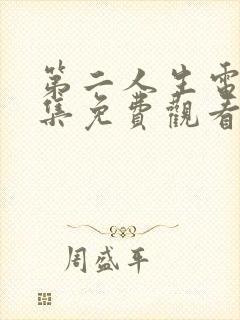 第二人生電
集免費觀看
周盛平